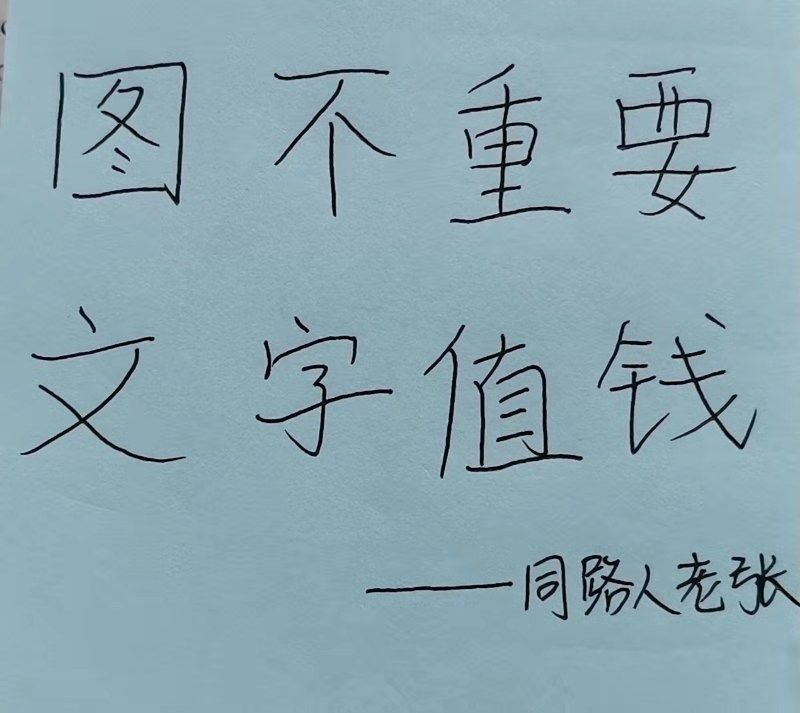 图不重要
文字值钱
——同路人老张